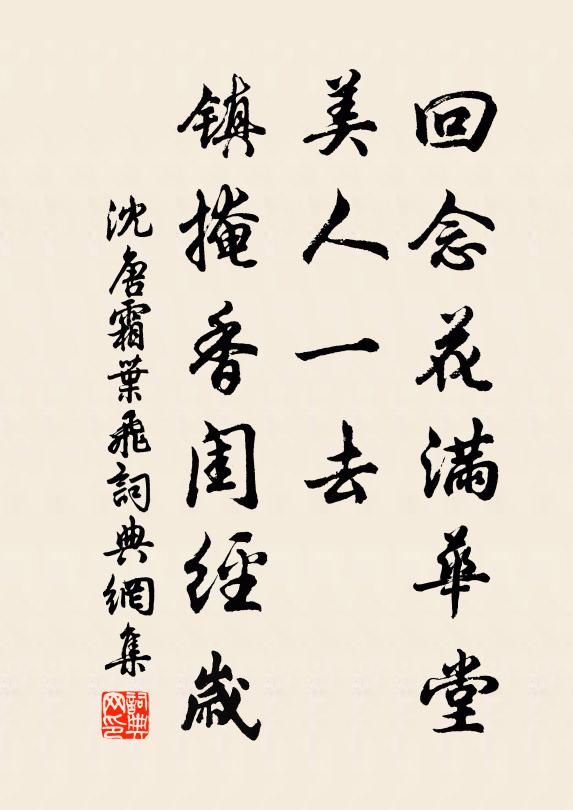 回念花滿華堂
美人一去
鎮掩香閨經歲
沈唐霜葉飛詞典網集
詞典网印